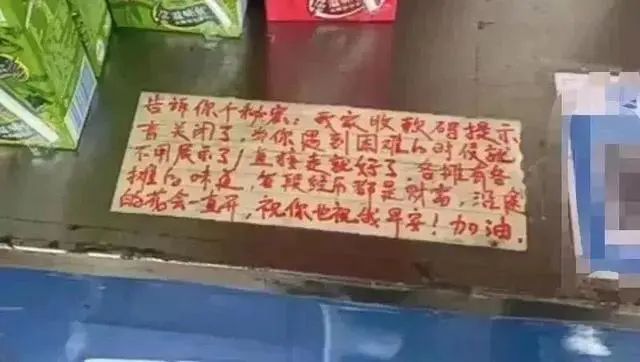 告诉你个秘密：我家收款码提示
音关闭了，当你遇到困难的时侯就
不用展示了，直接走就好了，各摊有各
摊的味道，每段经历都是财富，沿途
的花会一直开，祝你也祝我早安！加油．